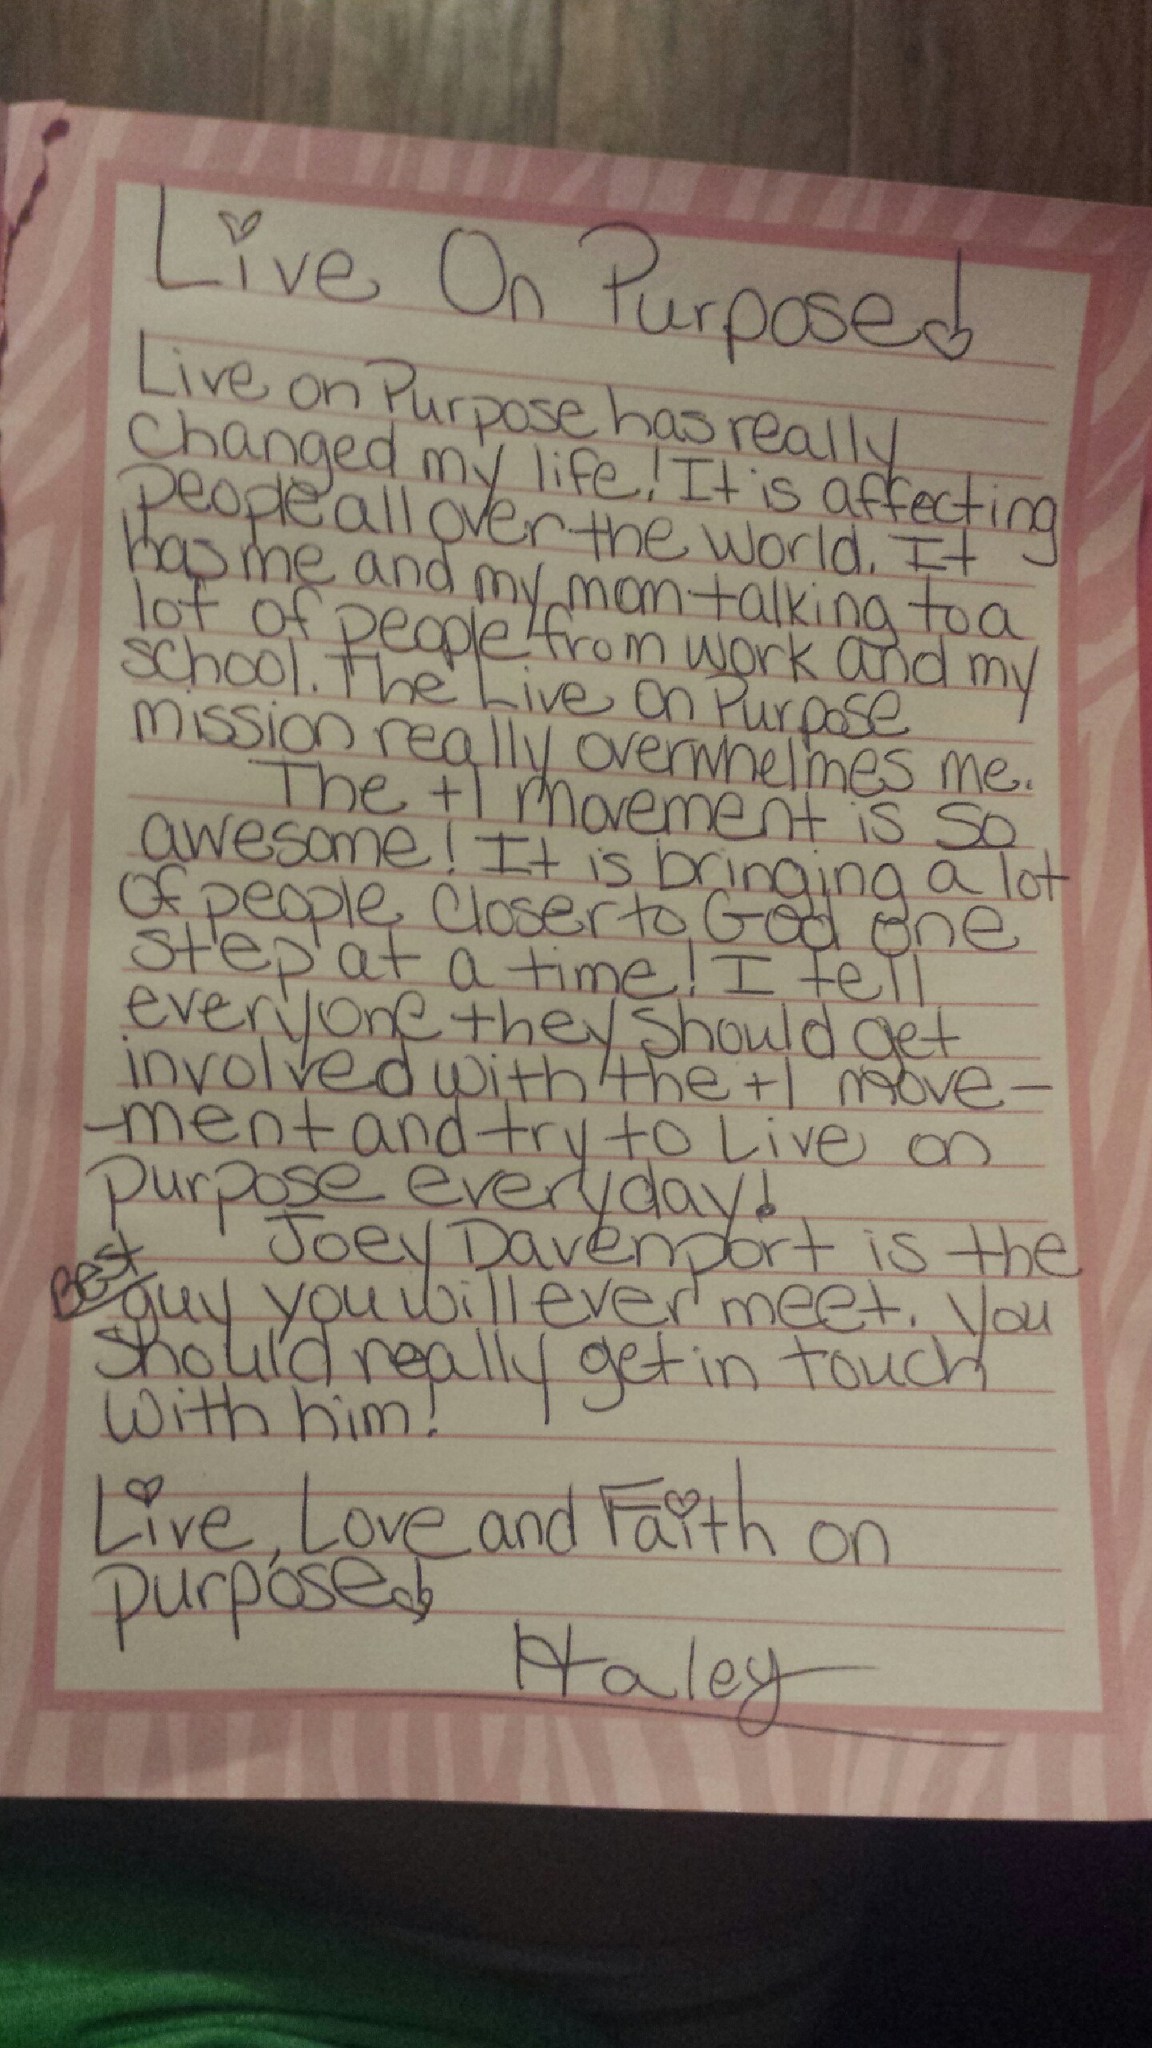 Live On Purpose!
Live on Purpose has really
changed my life! It is affecting
people all over the world. It
has me and my mom talking to a
lot of people from work and my
school. The Live on Purpose
mission really overwhelmes me.
The +1 movement is so
awesome! It is bringing a lot
of people closer to God one
step at a time! I tell
everyone they should get
involved with the +1 move-
-ment and try to Live on
purpose everyday!
Joey Davenport is the
Best guy you will ever meet. You
should really get in touch
with him!
Live, Love and Faith on
purpose!
Haley